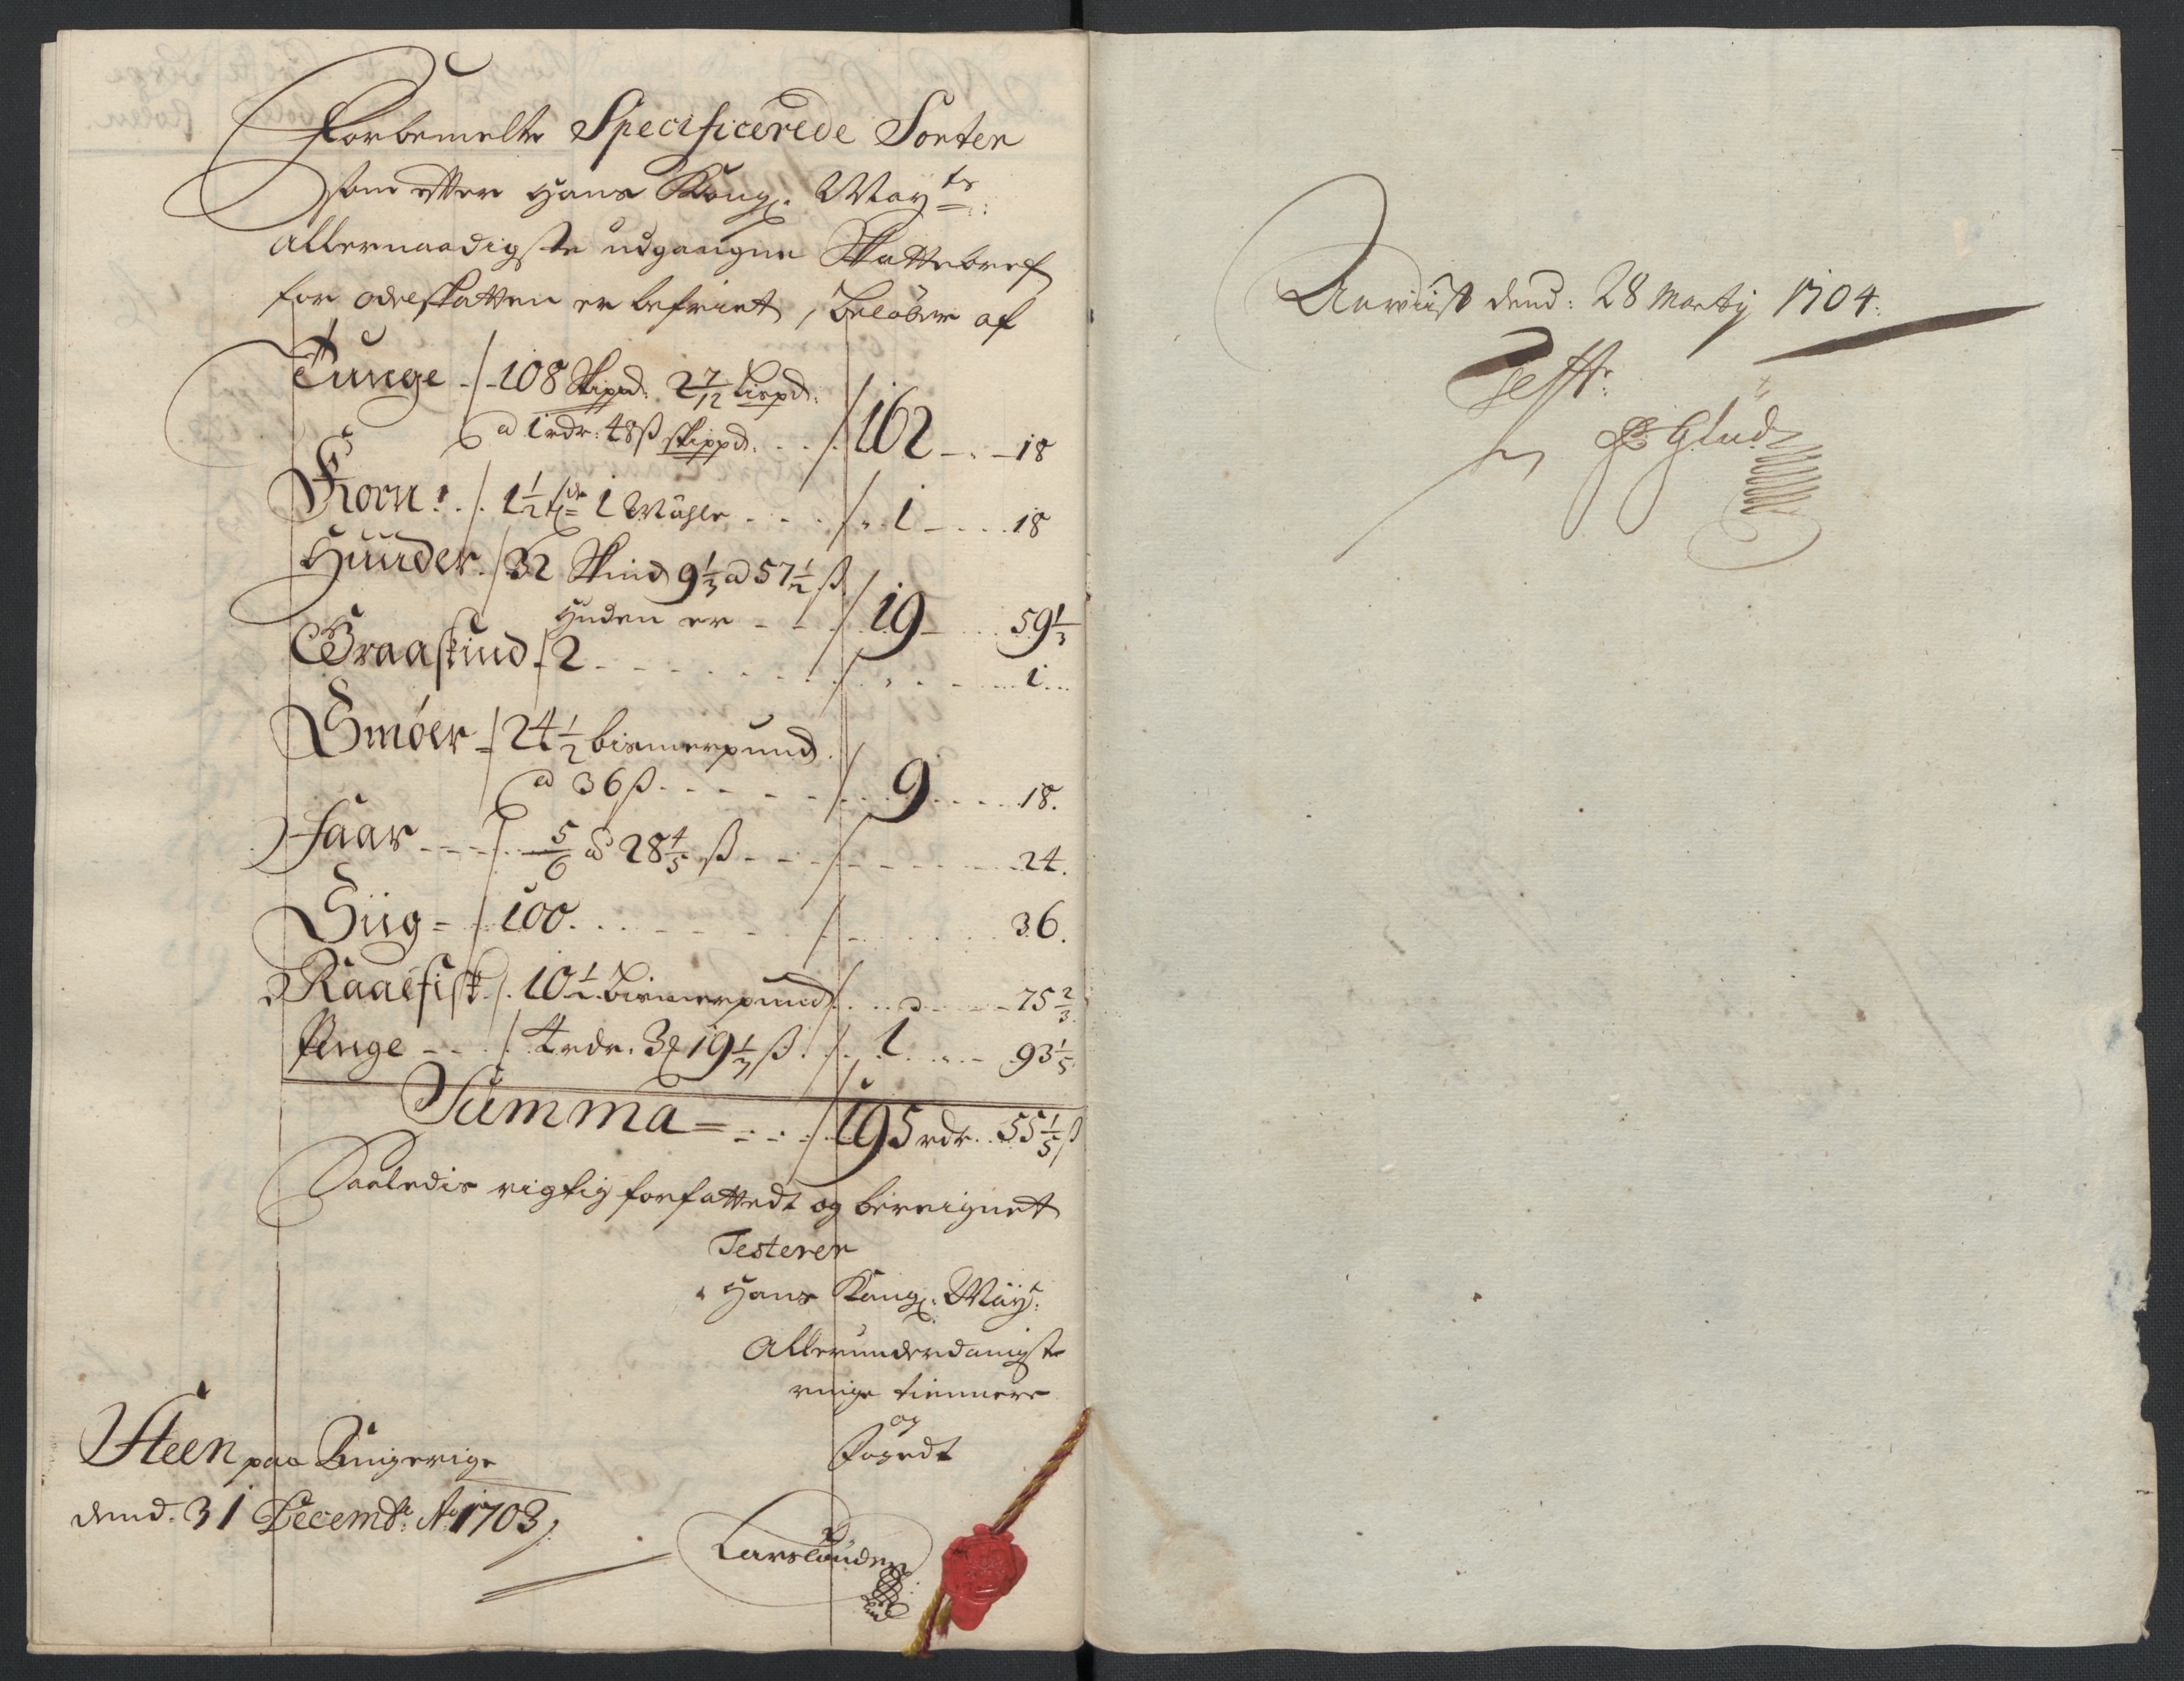 Forbemelte Specificerede Sorter
som efter Hans Kongl. May:ts
allernaadigste udgangne Skattebref
for odelskatten er befriet, beløber af
Tunge - 108 Skippd: 2 7/12 Lispd:
a 1 rdr: 48 ß skippd. 162 - 18
Korn: 1 1/2 td: 1 1 - 18
Huuder. 32 Skind 9 1/3 a 57 1/2 ß
Huden er - 19 - 59 1/3
Graaskind - 2 - 1
Smöer - 24 1/2 bismerpund
a 36 ß - 9 - 18.
Faar - 5/6 a 28 4/5 ß - 24.
Siig - 100. - 36.
Raaefisk. 10 1/2 bismerpund - 75 2/3
Penge - 4 rdr. 3 19 1/3 ß. 1 - 93 1/5
Summa = 195 rdr. 55 1/5 ß
Saaledis rigtig forfattedt og bereignet
Testerer
Hans Kongl. May:
Allerunderdanigste
ringe tiennere
og
Fogedt
Steen paa Ringerige
dend. 31 Decemb: Ao 1703
Lars
Anviist dend: 28 Martij 1704.
Test:
Glud